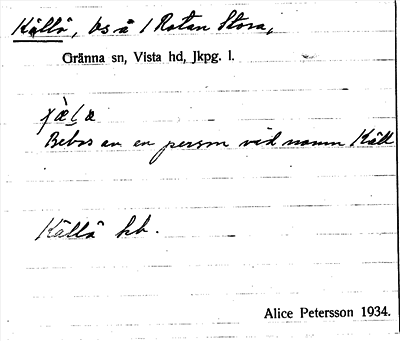 Källå, bs å 1 Rotan Stora,
Gränna sn, Vista hd, Jkpg. l.
Bebos av en person vid namn Käll
Källå hb.
Alice Petersson 1934.